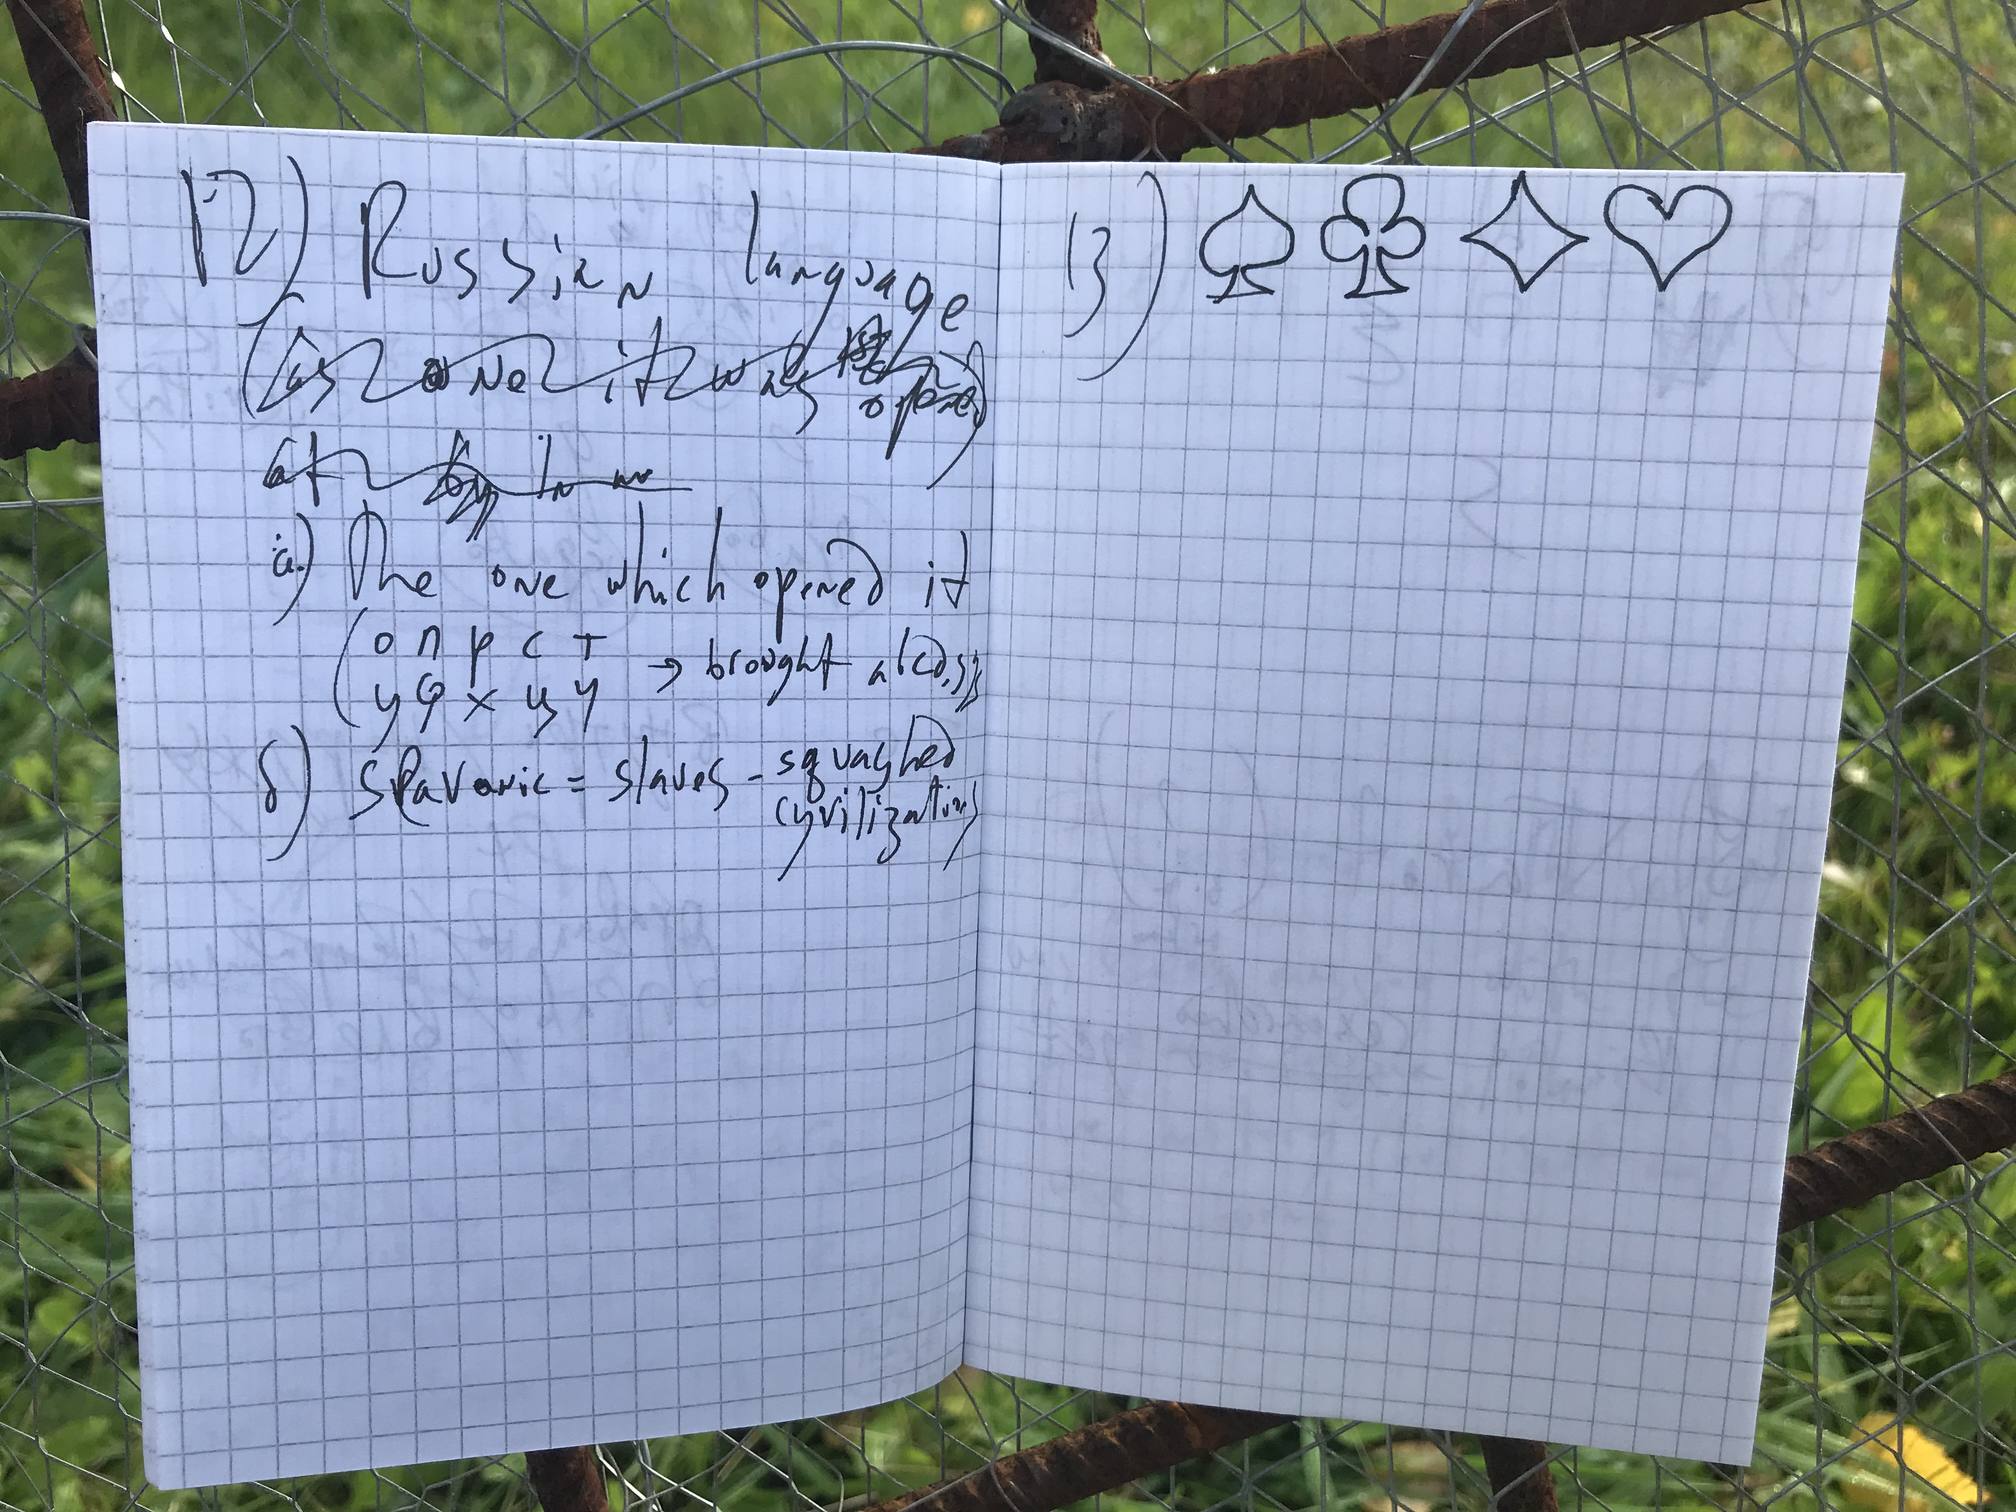 12) Russian language
(as one it was opened)
at by
a.) The one which opened it
(о п р с т
у ф х ц ч → brought
б) Slavonic = slaves - squashed
cyvilization
13) ♠ ♣ ♦ ♥